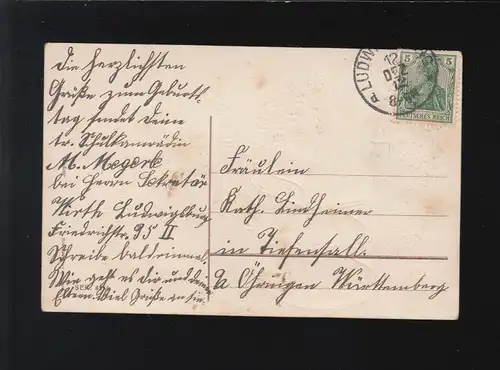 Die herzlichsten
Grüße zum Geburts-
tag sendet deine
tr. Schulkamrädin
M. Megerle
bei Herrn Sekretär
Wirth Ludwigsburg
Friedrichstr. 95 II
Schreibe baldeinmal.
Wie geht es dir und deinen
Eltern. Viel Grüße an sie.
LUDW
12
DEZ
12
8
5 5
DEUTSCHES REICH
Fräulein
Kath. Lindheimer
in Tiefensall.
a Öhringen Württemberg
SER.